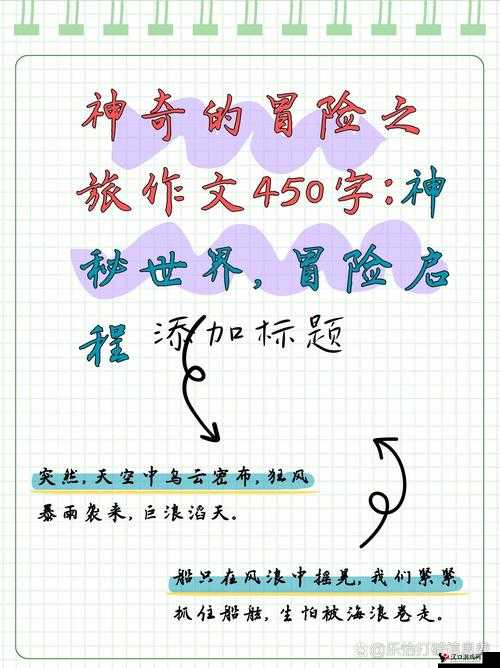 神奇的冒险之
旅作文450字:神
秘世界,冒险启
程 添加标题
突然,天空中乌云密布,狂风
暴雨袭来,巨浪滔天。
船只在风浪中摇晃,我们紧紧
抓住船舷,生怕被海浪卷走。